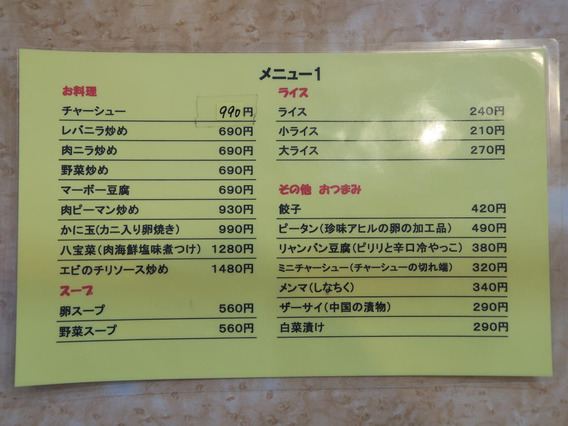 メニュー1
お料理
チャーシュー 990円
レバニラ炒め 690円
肉ニラ炒め 690円
野菜炒め 690円
マーボー豆腐 690円
肉ピーマン炒め 930円
かに玉(カニ入り卵焼き) 990円
八宝菜(肉海鮮塩味煮つけ) 1280円
エビのチリソース炒め 1480円
スープ
卵スープ 560円
野菜スープ 560円
ライス
ライス 240円
小ライス 210円
大ライス 270円
その他 おつまみ
餃子 420円
ピータン(珍味アヒルの卵の加工品) 490円
リャンバン豆腐(ピリリと辛口冷やっこ) 380円
ミニチャーシュー(チャーシューの切れ端) 320円
メンマ(しなちく) 340円
ザーサイ(中国の漬物) 290円
白菜漬け 290円